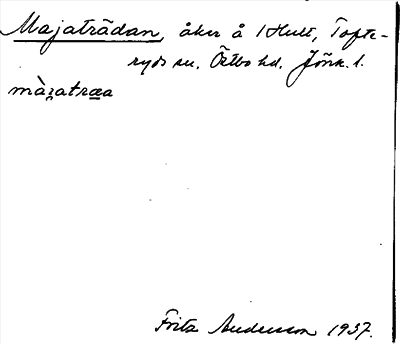 Majaträdan, åker å 1 Hult, Tofte-
ryds sn. Östbo hd. Jönk. l.
màjatræa
Fritz Andersson 1937.